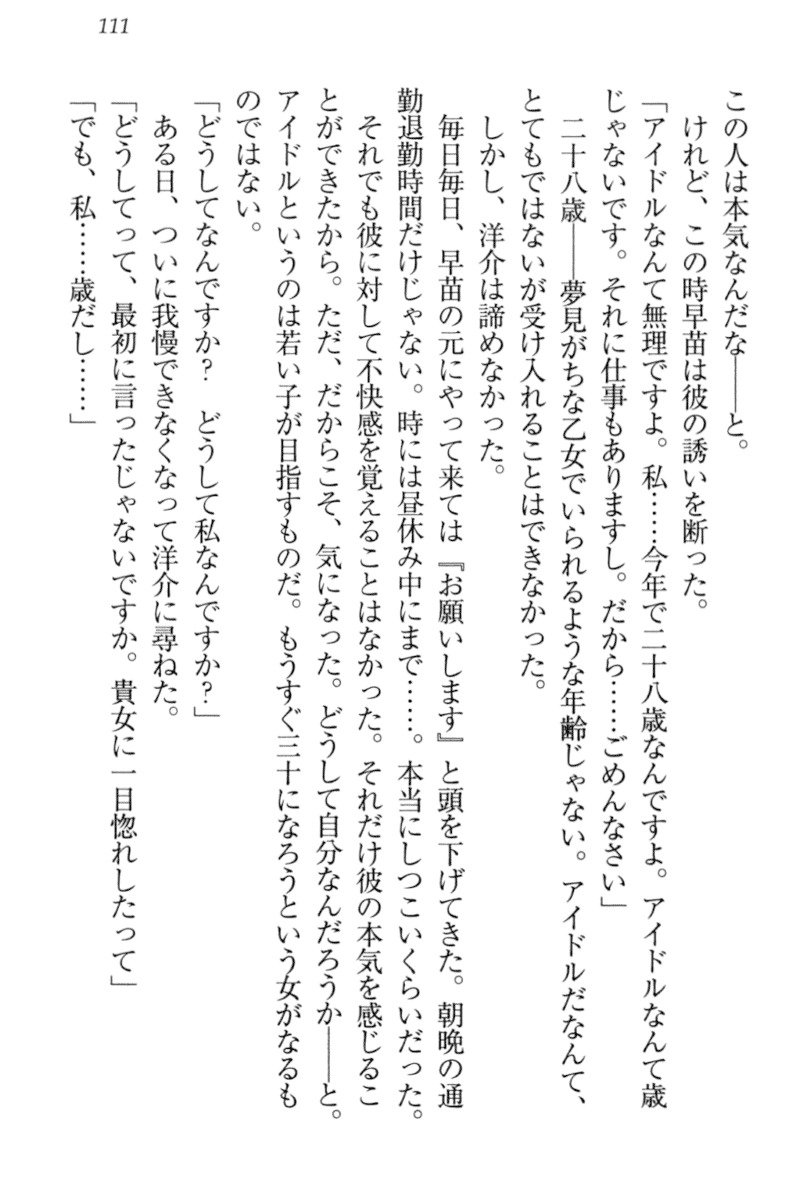 111
この人は本気なんだな――と。
けれど、この時早苗は彼の誘いを断った。
「アイドルなんて無理ですよ。私……今年で二十八歳なんですよ。アイドルなんて歳
じゃないです。それに仕事もありますし。だから……ごめんなさい」
二十八歳――夢見がちな乙女でいられるような年齢じゃない。アイドルだなんて、
とてもではないが受け入れることはできなかった。
しかし、洋介は諦めなかった。
毎日毎日、早苗の元にやって来ては『お願いします』と頭を下げてきた。朝晩の通
勤退勤時間だけじゃない。時には昼休み中にまで……。本当にしつこいくらいだった。
それでも彼に対して不快感を覚えることはなかった。それだけ彼の本気を感じるこ
とができたから。ただ、だからこそ、気になった。どうして自分なんだろうか――と。
アイドルというのは若い子が目指すものだ。もうすぐ三十になろうという女がなるも
のではない。
「どうしてなんですか？　どうして私なんですか？」
ある日、ついに我慢できなくなって洋介に尋ねた。
「どうしてって、最初に言ったじゃないですか。貴女に一目惚れしたって」
「でも、私……歳だし……」